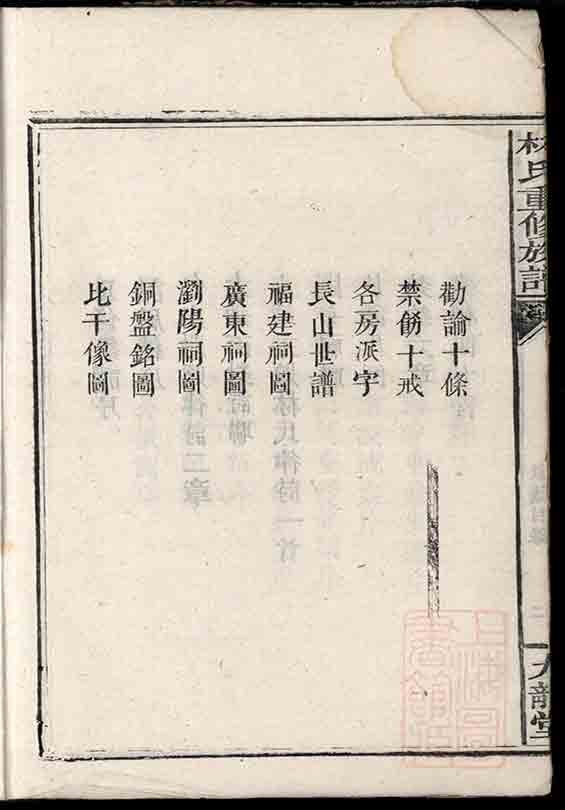 林氏重修族譜
九龍堂
勸諭十條
禁飭十戒
各房派字
長山世譜
福建祠圖
廣東祠圖
瀏陽祠圖
銅盤銘圖
比干像圖